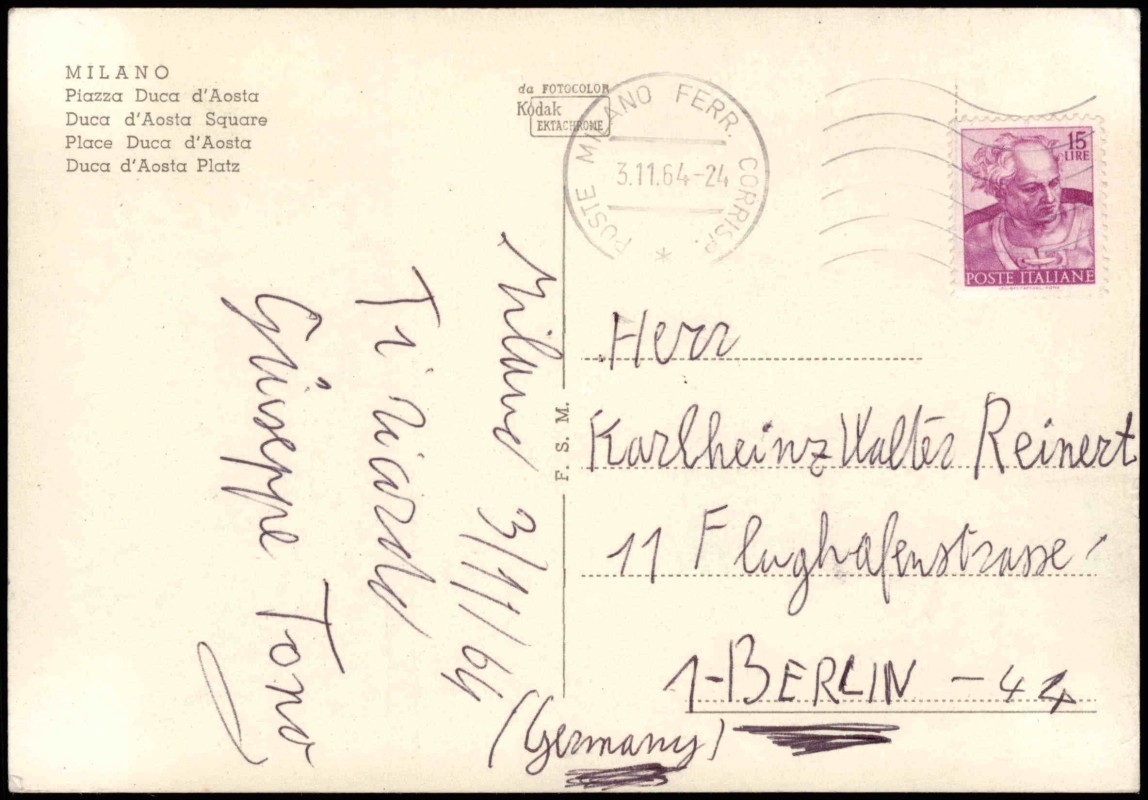 MILANO
Piazza Duca d'Aosta
Duca d'Aosta Square
Place Duca d'Aosta
Duca d'Aosta Platz
da FOTOCOLOR
Kodak
EKTACHROME
POSTE MILANO FERR. CORRISP.
3.11.64-24
*
15
LIRE
POSTE ITALIANE
Milano 3/11/64
Ti ricordo
Giuseppe Tono
F. S. M.
Herr
Karlheinz Walter Reinert
11 Flughafenstrasse
1-BERLIN-44
(Germany)